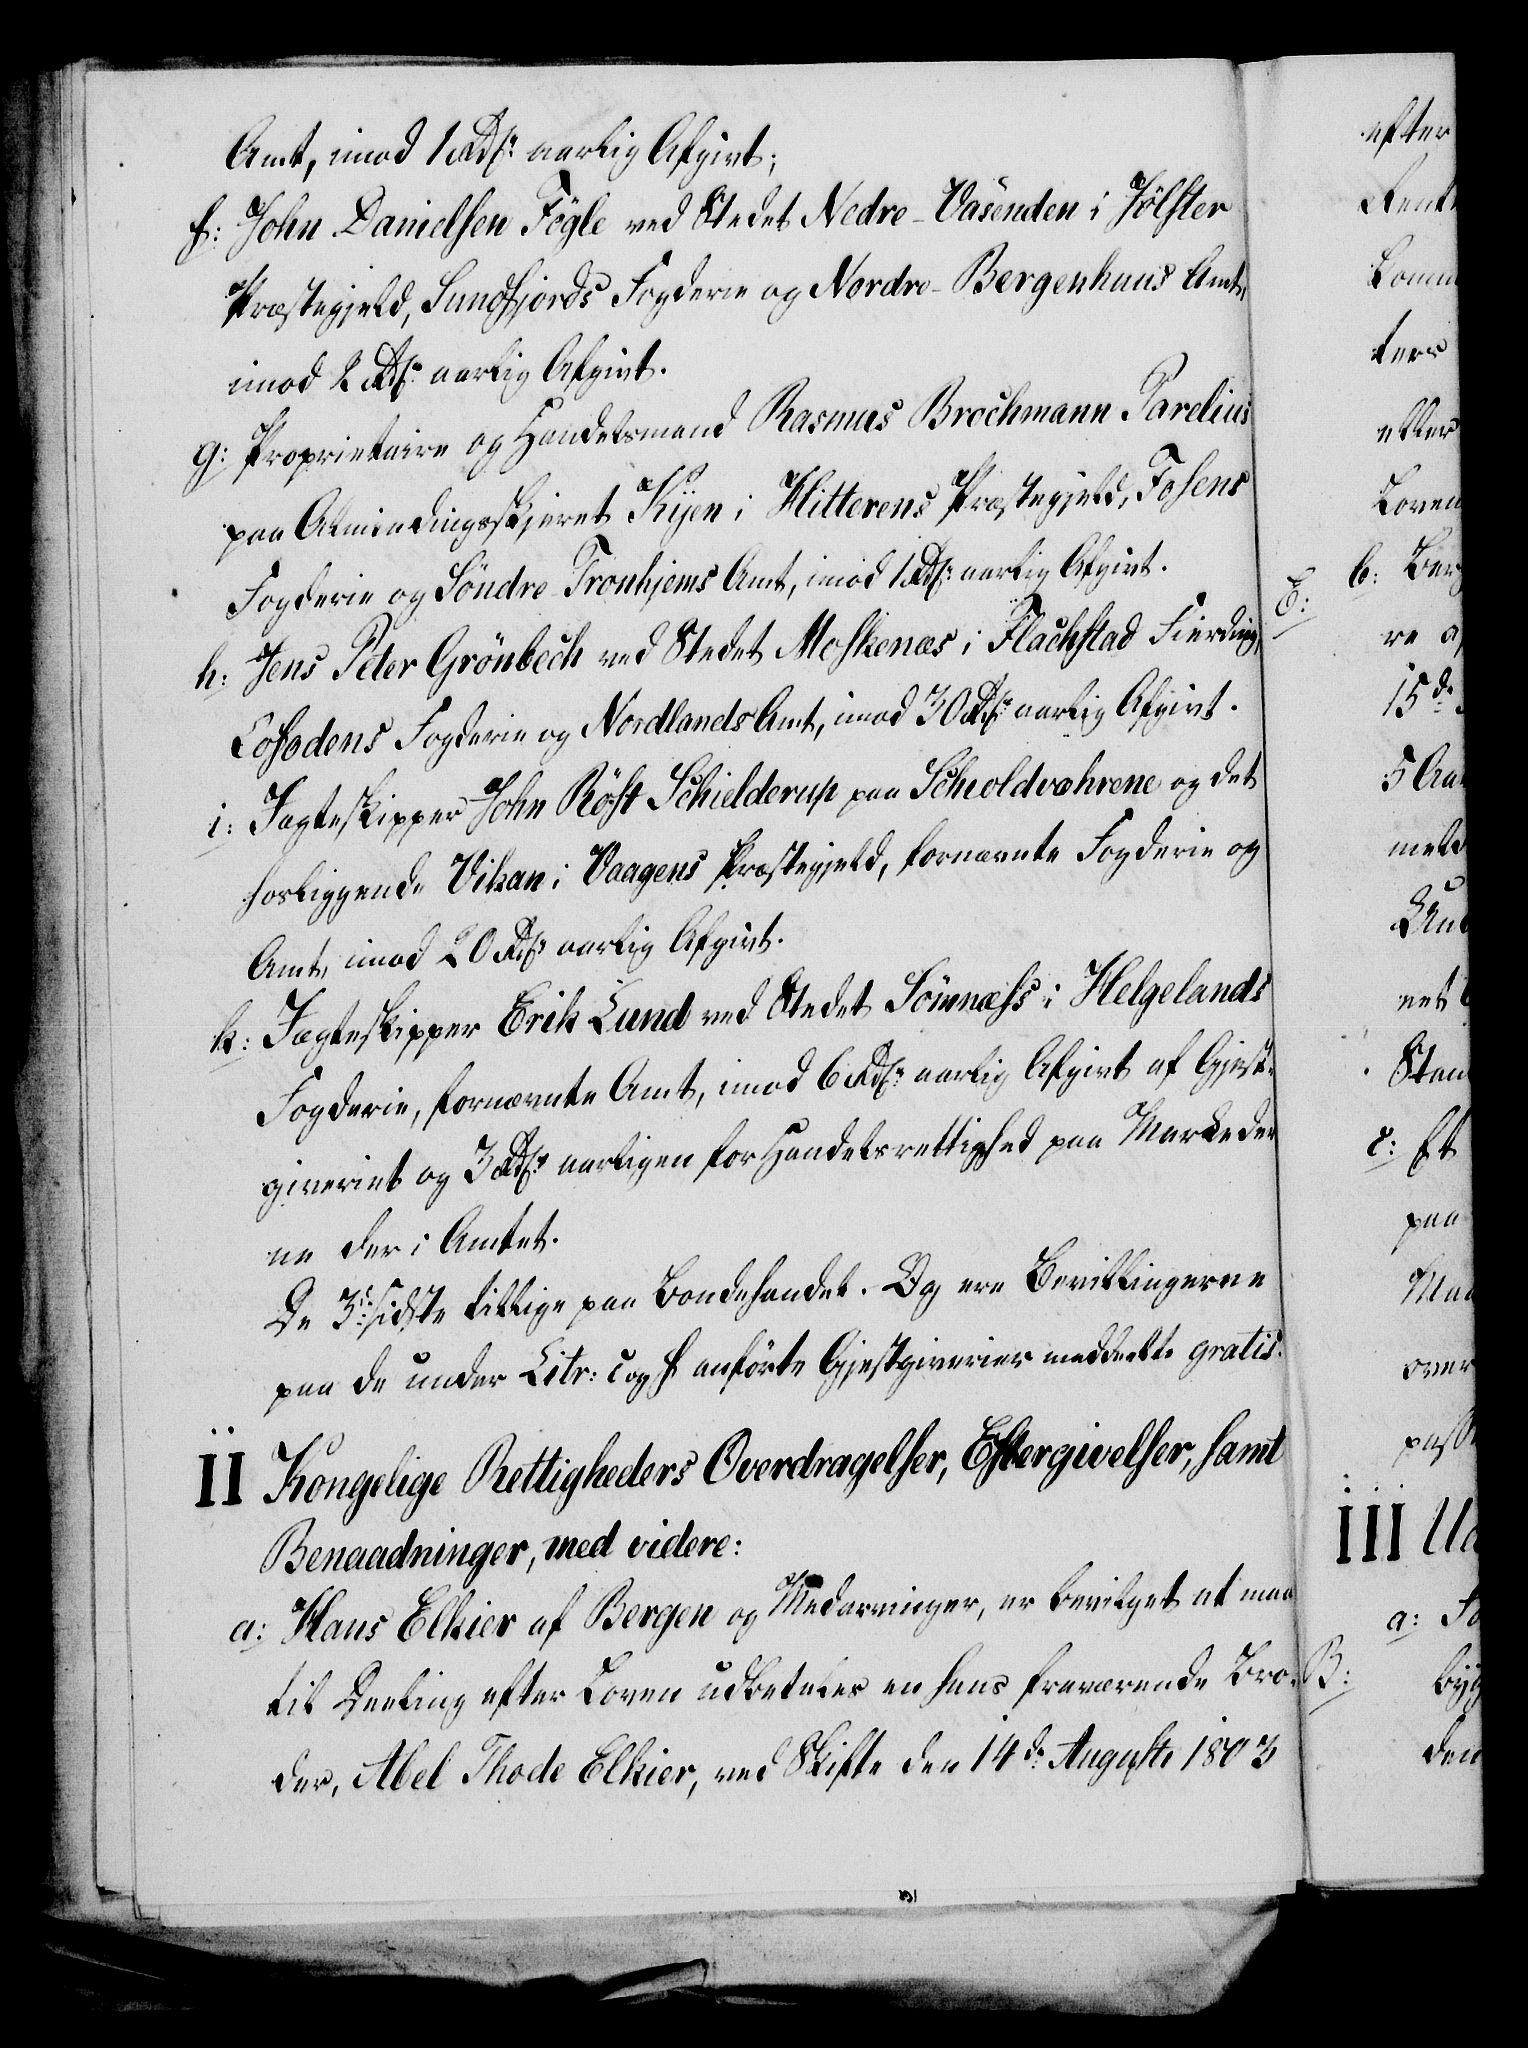 Amt, imod 1 Rdlr: aarlig Afgivt;
f: John Danielsen Fögle ved Stedet Nedre-Vasenden i Jölster
Præstegjeld, Sundfjords Fogderie og Nordre-Bergenhuus Amt,
imod 2 Rdlr: aarlig Afgivt.
g: Proprietaire og Handelsmand Rasmus Brochmann Parelius
paa Almindingsskjæret Kijen i Hitterens Præstegjeld, Fosens
Fogderie og Söndre Tronhjems Amt, imod 1 Rdlr: aarlig Afgivt.
h: Jens Peter Grönbech ved Stedet Moskenæs i Flachstad Fierding,
Lofodens Fogderie og Nordlands Amt, imod 30 Rdlr: aarlig Afgivt.
i: Jagteskipper John Röst Schielderup paa Schioldvæhrene og det
hosliggende Vikan i Vaagens Præstegjeld, fornævnte Fogderie og
Amt, imod 20 Rdlr: aarlig Afgivt.
k: Jagteskipper Erik Lund ved Stedet Sömnæss i Helgelands
Fogderie, fornævnte Amt, imod 6 Rdlr: aarlig Afgivt af Gjest-
giveriet og 3 Rdlr: aarligen for Handelsrettighed paa Markeder
ne der i Amtet.
De 3de sidste tillige paa Bondehandel. Og ere Bevillingerne
paa de under Litr: c og f anförte Gjestgiverier meddeelte gratis.
II Kongelige Rettigheders Overdragelser, Eftergivelser, samt
Benaadninger, med videre:
a: Hans Elkier af Bergen og Medarvinger, er bevilget at maa
til Deeling efter Loven udbetales en hans fraværende Bro-
der, Abel Thode Elkier, ved Skifte den 14de Augusti 1803
efter
Rente
Comm
ters
efter
Loven
E: b: Berg
re a
15de
5 Aa
meld
Qu
net
Stan
c: Et
paa
Ma
over
pass
III Ud
a: Fo
B: byg
den